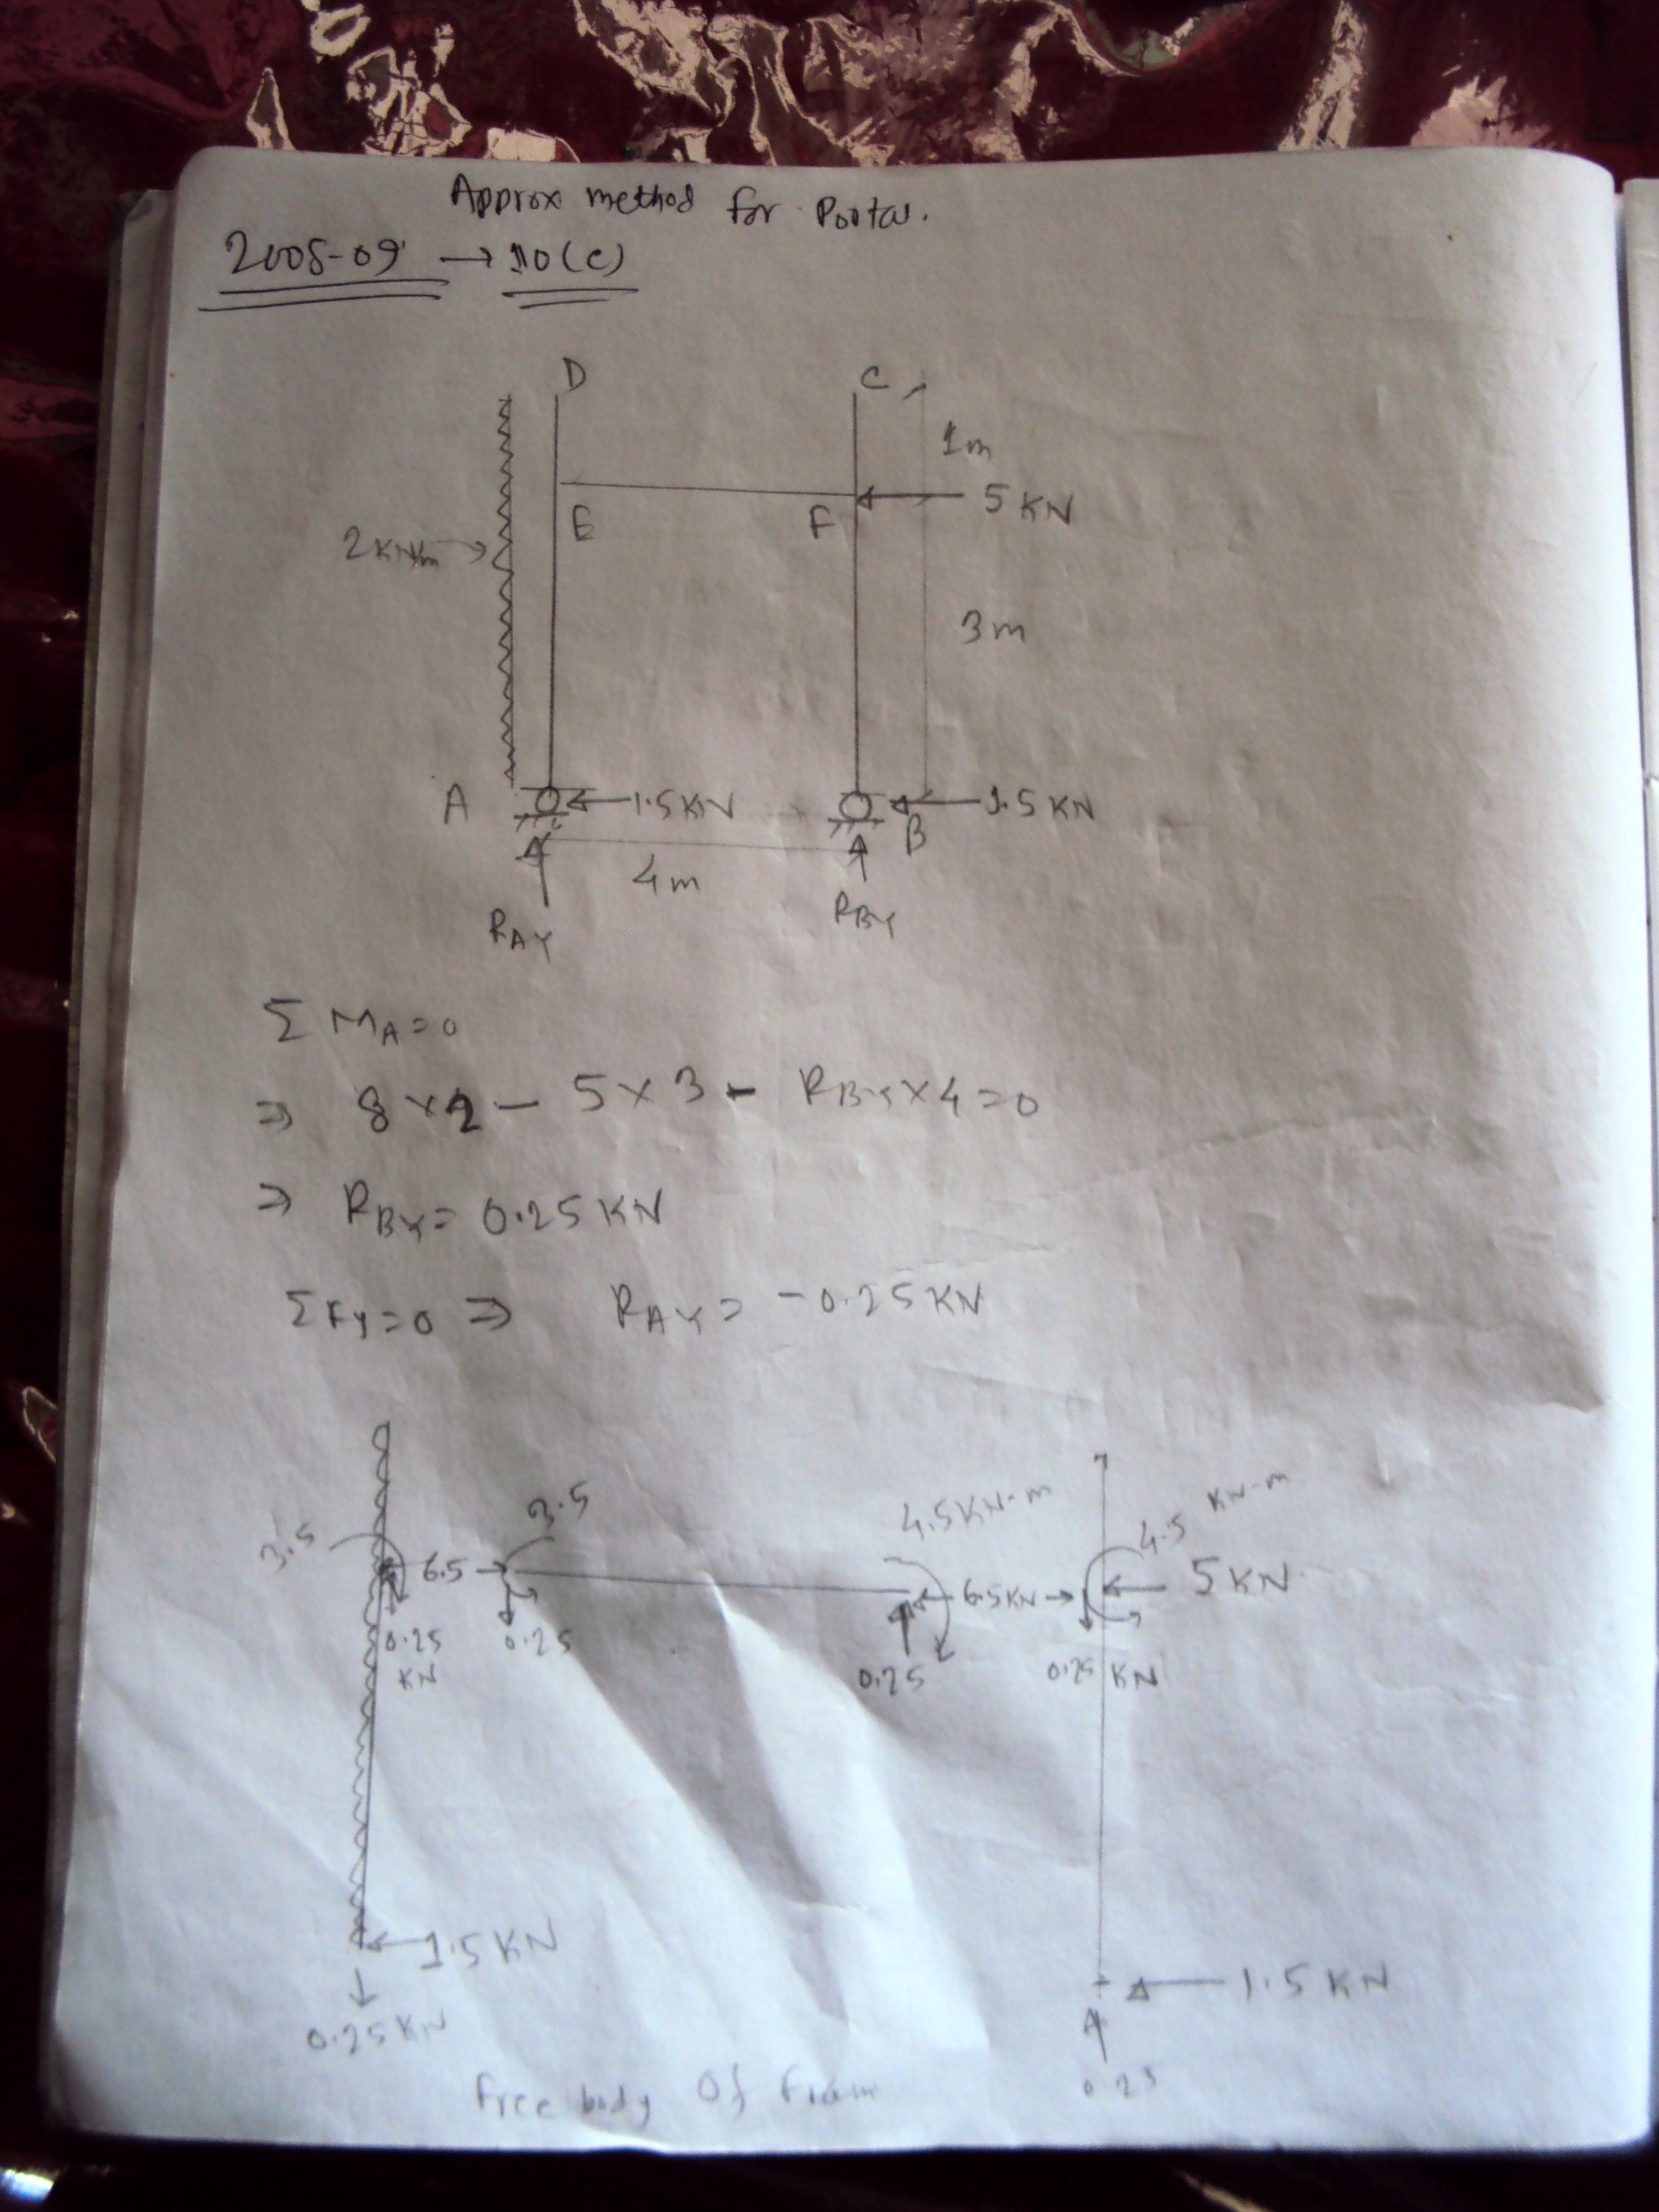 Approx method for Portal.
2008-09 → 10(c)
D
C
1m
5 KN
E
F
2 KN/m
3m
A
1.5KN
1.5 KN
B
4m
RAY
RBY
Σ MA=0
⇒ 8×2 - 5×3 - RBY×4=0
⇒ RBY= 0.25 KN
ΣFy=0 ⇒ RAY= -0.25KN
3.5
3.5
4.5KN-m
4.5 KN-m
6.5
6.5KN
5 KN
0.25 KN
0.25
0.25
0.25 KN
1.5 KN
0.25KN
1.5 KN
0.25
Free body Of Fram